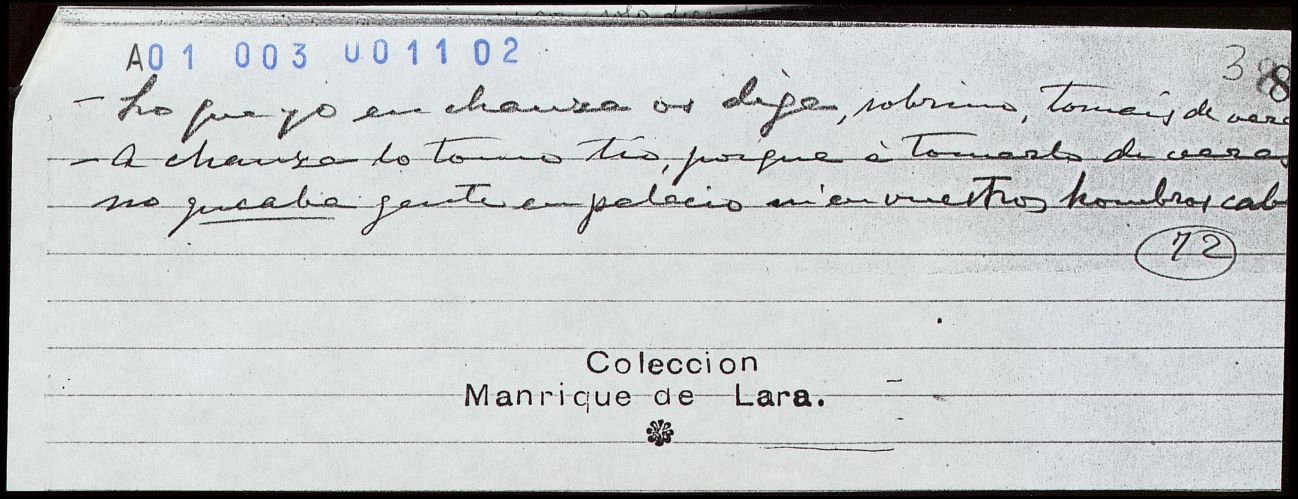 A01 003 001102
388
- Lo que yo en chanza os dige, sobrino, tomais de vera
- A chanza lo tomo tio, porque à tomarlo de veras
no queaba gente en palacio ni en vuestros hombros cab
72
Coleccion
Manrique de Lara.